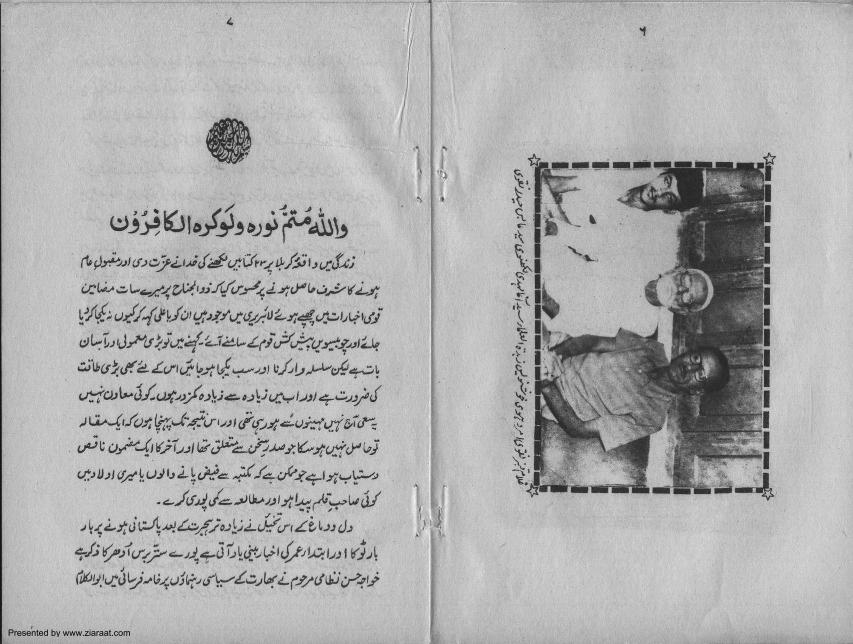 ۶
۷
واللہ مُتمُّ نورہ ولوکرہ الکافِرُوْن
زندگی میں واقعۂ کربلا پر ۲۳ کتابیں لکھنے کی خدا نے عزّت دی اور مقبول عام
ہونے کا شرف حاصل ہونے پر محسوس کیا کہ ذوالجناح پر میرے سات مضامین
قومی اخبارات میں چھپے ہوئے لائبریری میں موجود ہیں ان کو یا علی کہہ کر کیوں نہ یکجا کر دیا
جائے اور چوبیسویں پیش کش قوم کے سامنے آئے۔ کہنے میں تو بڑی معمولی اور آسان
بات ہے لیکن سلسلہ وار کرنا اور سب یکجا ہو جائیں اس کے لئے بھی بڑی طاقت
کی ضرورت ہے اور اب میں زیادہ سے زیادہ کمزور ہوں۔ کوئی معاون نہیں
یہ سعی آج نہیں مہینوں سے ہو رہی تھی اور اس نتیجہ تک پہنچا ہوں کہ ایک مقالہ
تو حاصل نہیں ہو سکا جو صدر سخن سے متعلق تھا اور آخر کا ایک مضمون ناقص
دستیاب ہوا ہے جو ممکن ہے کہ مکتبہ سے فیض پانے والوں یا میری اولاد میں
کوئی صاحبِ قلم پیدا ہو اور مطالعہ سے کمی پوری کرے۔
دل و دماغ کے اس تخیّل نے زیادہ تر ہجرت کے بعد پاکستانی ہونے پر بار
بار ٹوکا اور ابتداء عمر کی اخبار بینی یاد آتی ہے پورے ستّر برس اُدھر کا ذکر ہے
خواجہ حسن نظامی مرحوم نے بھارت کے سیاسی رہنماؤں پر خامہ فرسائی میں ابوالکلام
Presented by www.ziaraat.com